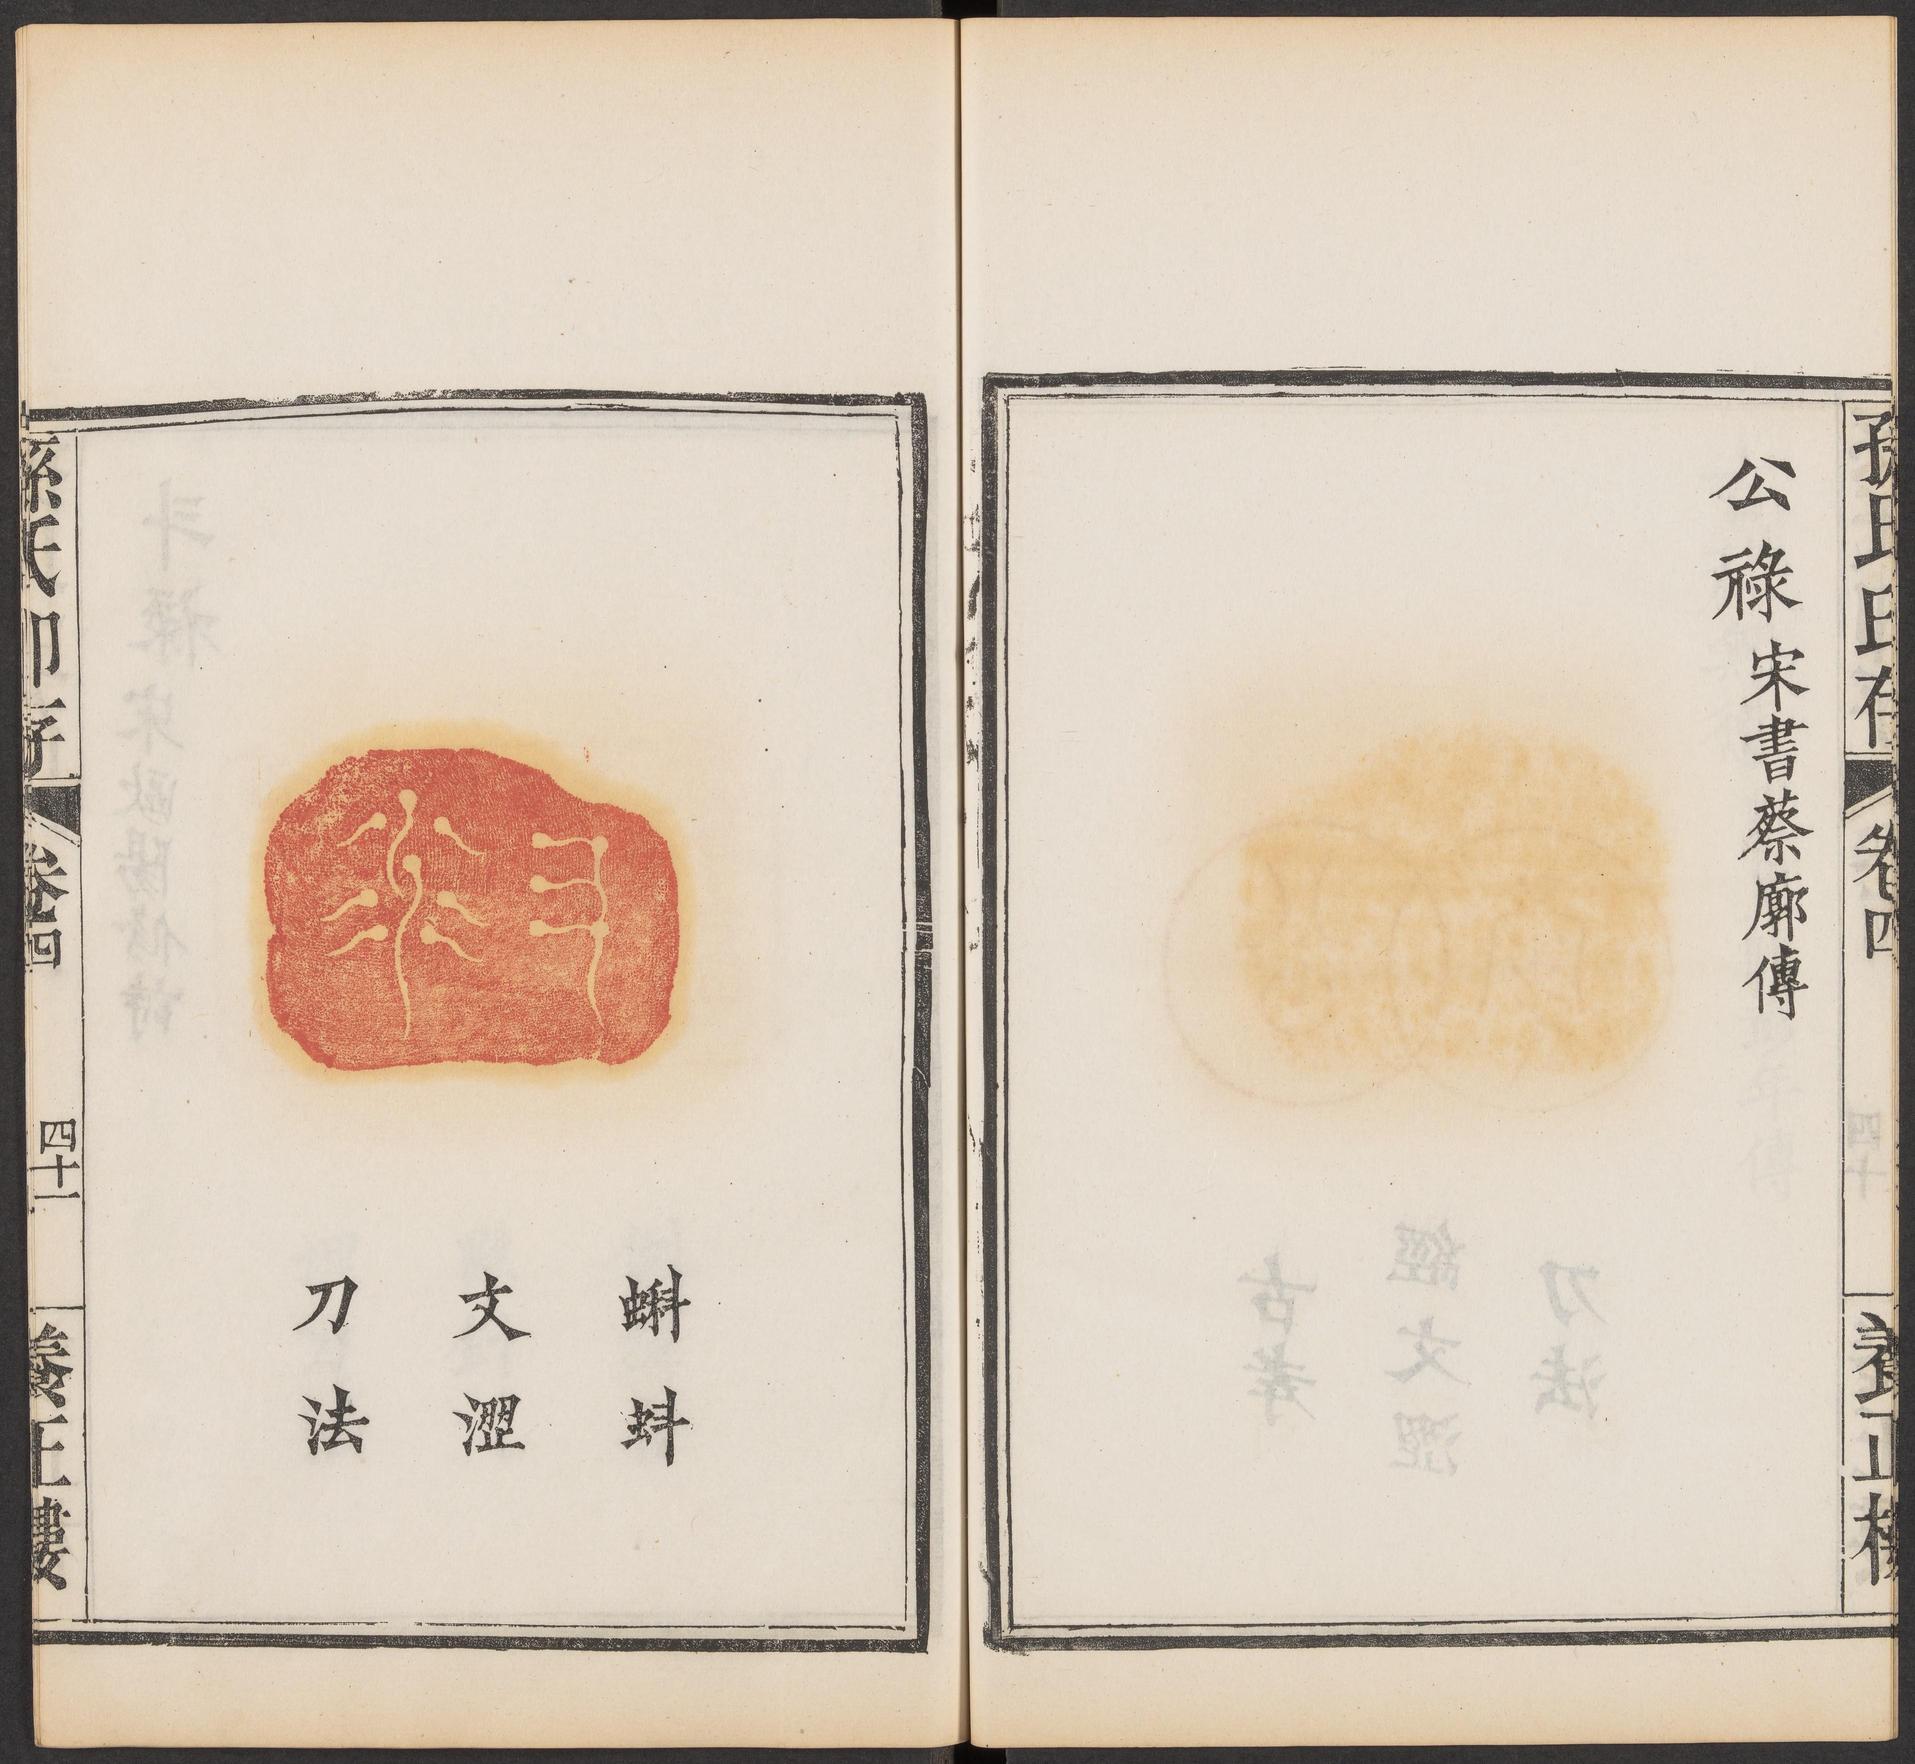 孫氏印存
卷四
養正樓
公祿 宋書蔡廓傳
蝌蚪
文澀
刀法
孫氏印存
卷四
四十一
養正樓